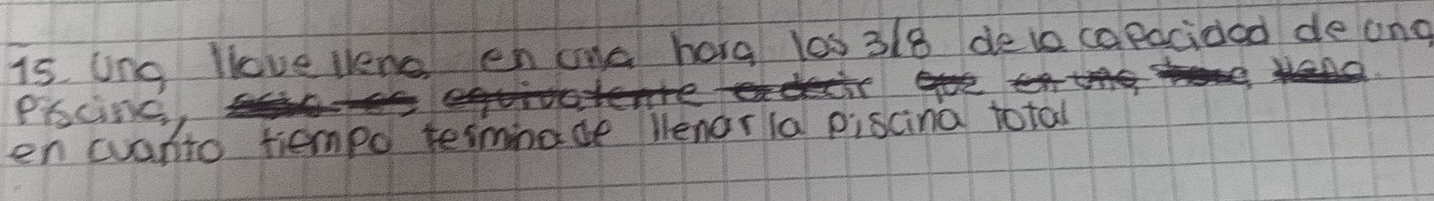 15. Una llave llena en una hora los 3/8 de la capacidad de una
piscina, equivalente a decir que en una hora llena
en cuanto tiempo termina de llenar la piscina total